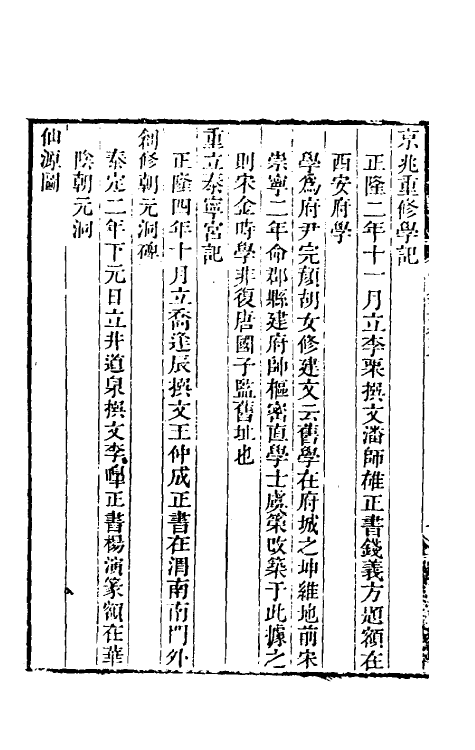 京兆重修學記
正隆二年十一月立李㮚撰文潘師雄正書錢義方題額在
西安府學
學爲府尹完顔胡女修建文云舊學在府城之坤維地前宋
崇寧二年命郡縣建府帥樞密直學士虞策改築于此據之
則宋金時學非復唐國子監舊址也
重立泰寧宮記
正隆四年十月立喬逢辰撰文王仲成正書在渭南南門外
創修朝元洞碑
泰定二年下元日立井道泉撰文李暉正書楊演篆額在華
陰朝元洞
仙源圖